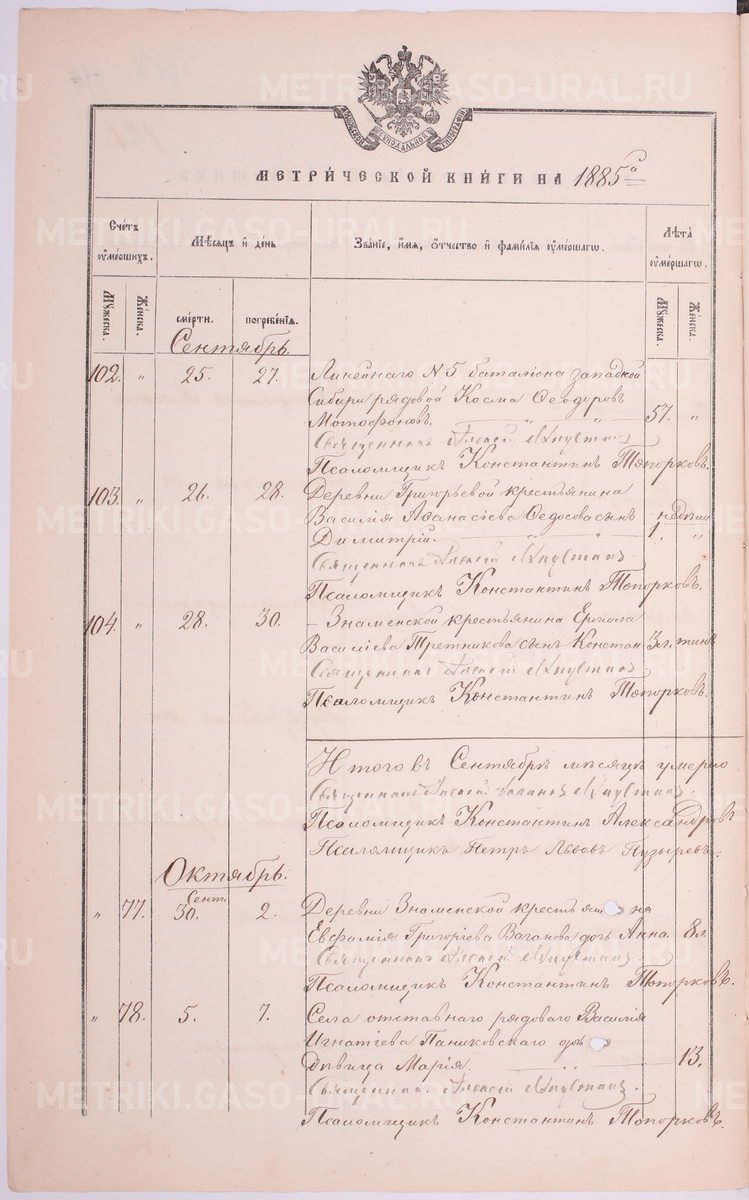 METRIKI.GASO-URAL.RU
МЕТРИ́ЧЕСКОЙ КНИ́ГИ НА 1885й
Счетъ ᲂумершихъ.
Мѣсяцъ и день
Званіе, имя, ѻтчество и фамилія ᲂумершагѡ.
Лѣта ᲂумершагѡ.
Мꙋжеска.
Женска.
смерти.
погребенія.
Мꙋжеска.
Женска.
Сентябрь.
102. " 25. 27. Линейнаго N 5 баталіона западной
Сибири рядовой Косма Ѳеодоровъ
57. "
Священникъ Алексій
Псаломщикъ Константинъ Топорковъ.
103. " 26. 28. Деревни Григорьевой крестьянина
Василія Аѳанасіева Ѳедосова сынъ
Димитрій. 1. "
Священникъ Алексій
Псаломщикъ Константинъ Топорковъ.
104. " 28. 30. – Знаменской крестьянина
Василіева Третникова сынъ Констан 3 л. тинъ
Священникъ Алексій
Псаломщикъ Константинъ Топорковъ.
Итого въ Сентябрѣ мѣсяцѣ умерло
Священникъ Алексій
Псаломщикъ Константинъ Александровъ
Псаломщикъ Петръ Львовъ Пузыревъ.
Октябрь.
Сент.
" 77. 30. 2. Деревни Знаменской крестьянина
Евфимія Григоріева Ваганова дочь Анна. 8 л.
Священникъ Алексій
Псаломщикъ Константинъ Топорковъ.
" 78. 5. 7. Села отставнаго рядоваго Василія
Игнатіева Паниковскаго дочь
дѣвица Марія. 13.
Священникъ Алексій
Псаломщикъ Константинъ Топорковъ.